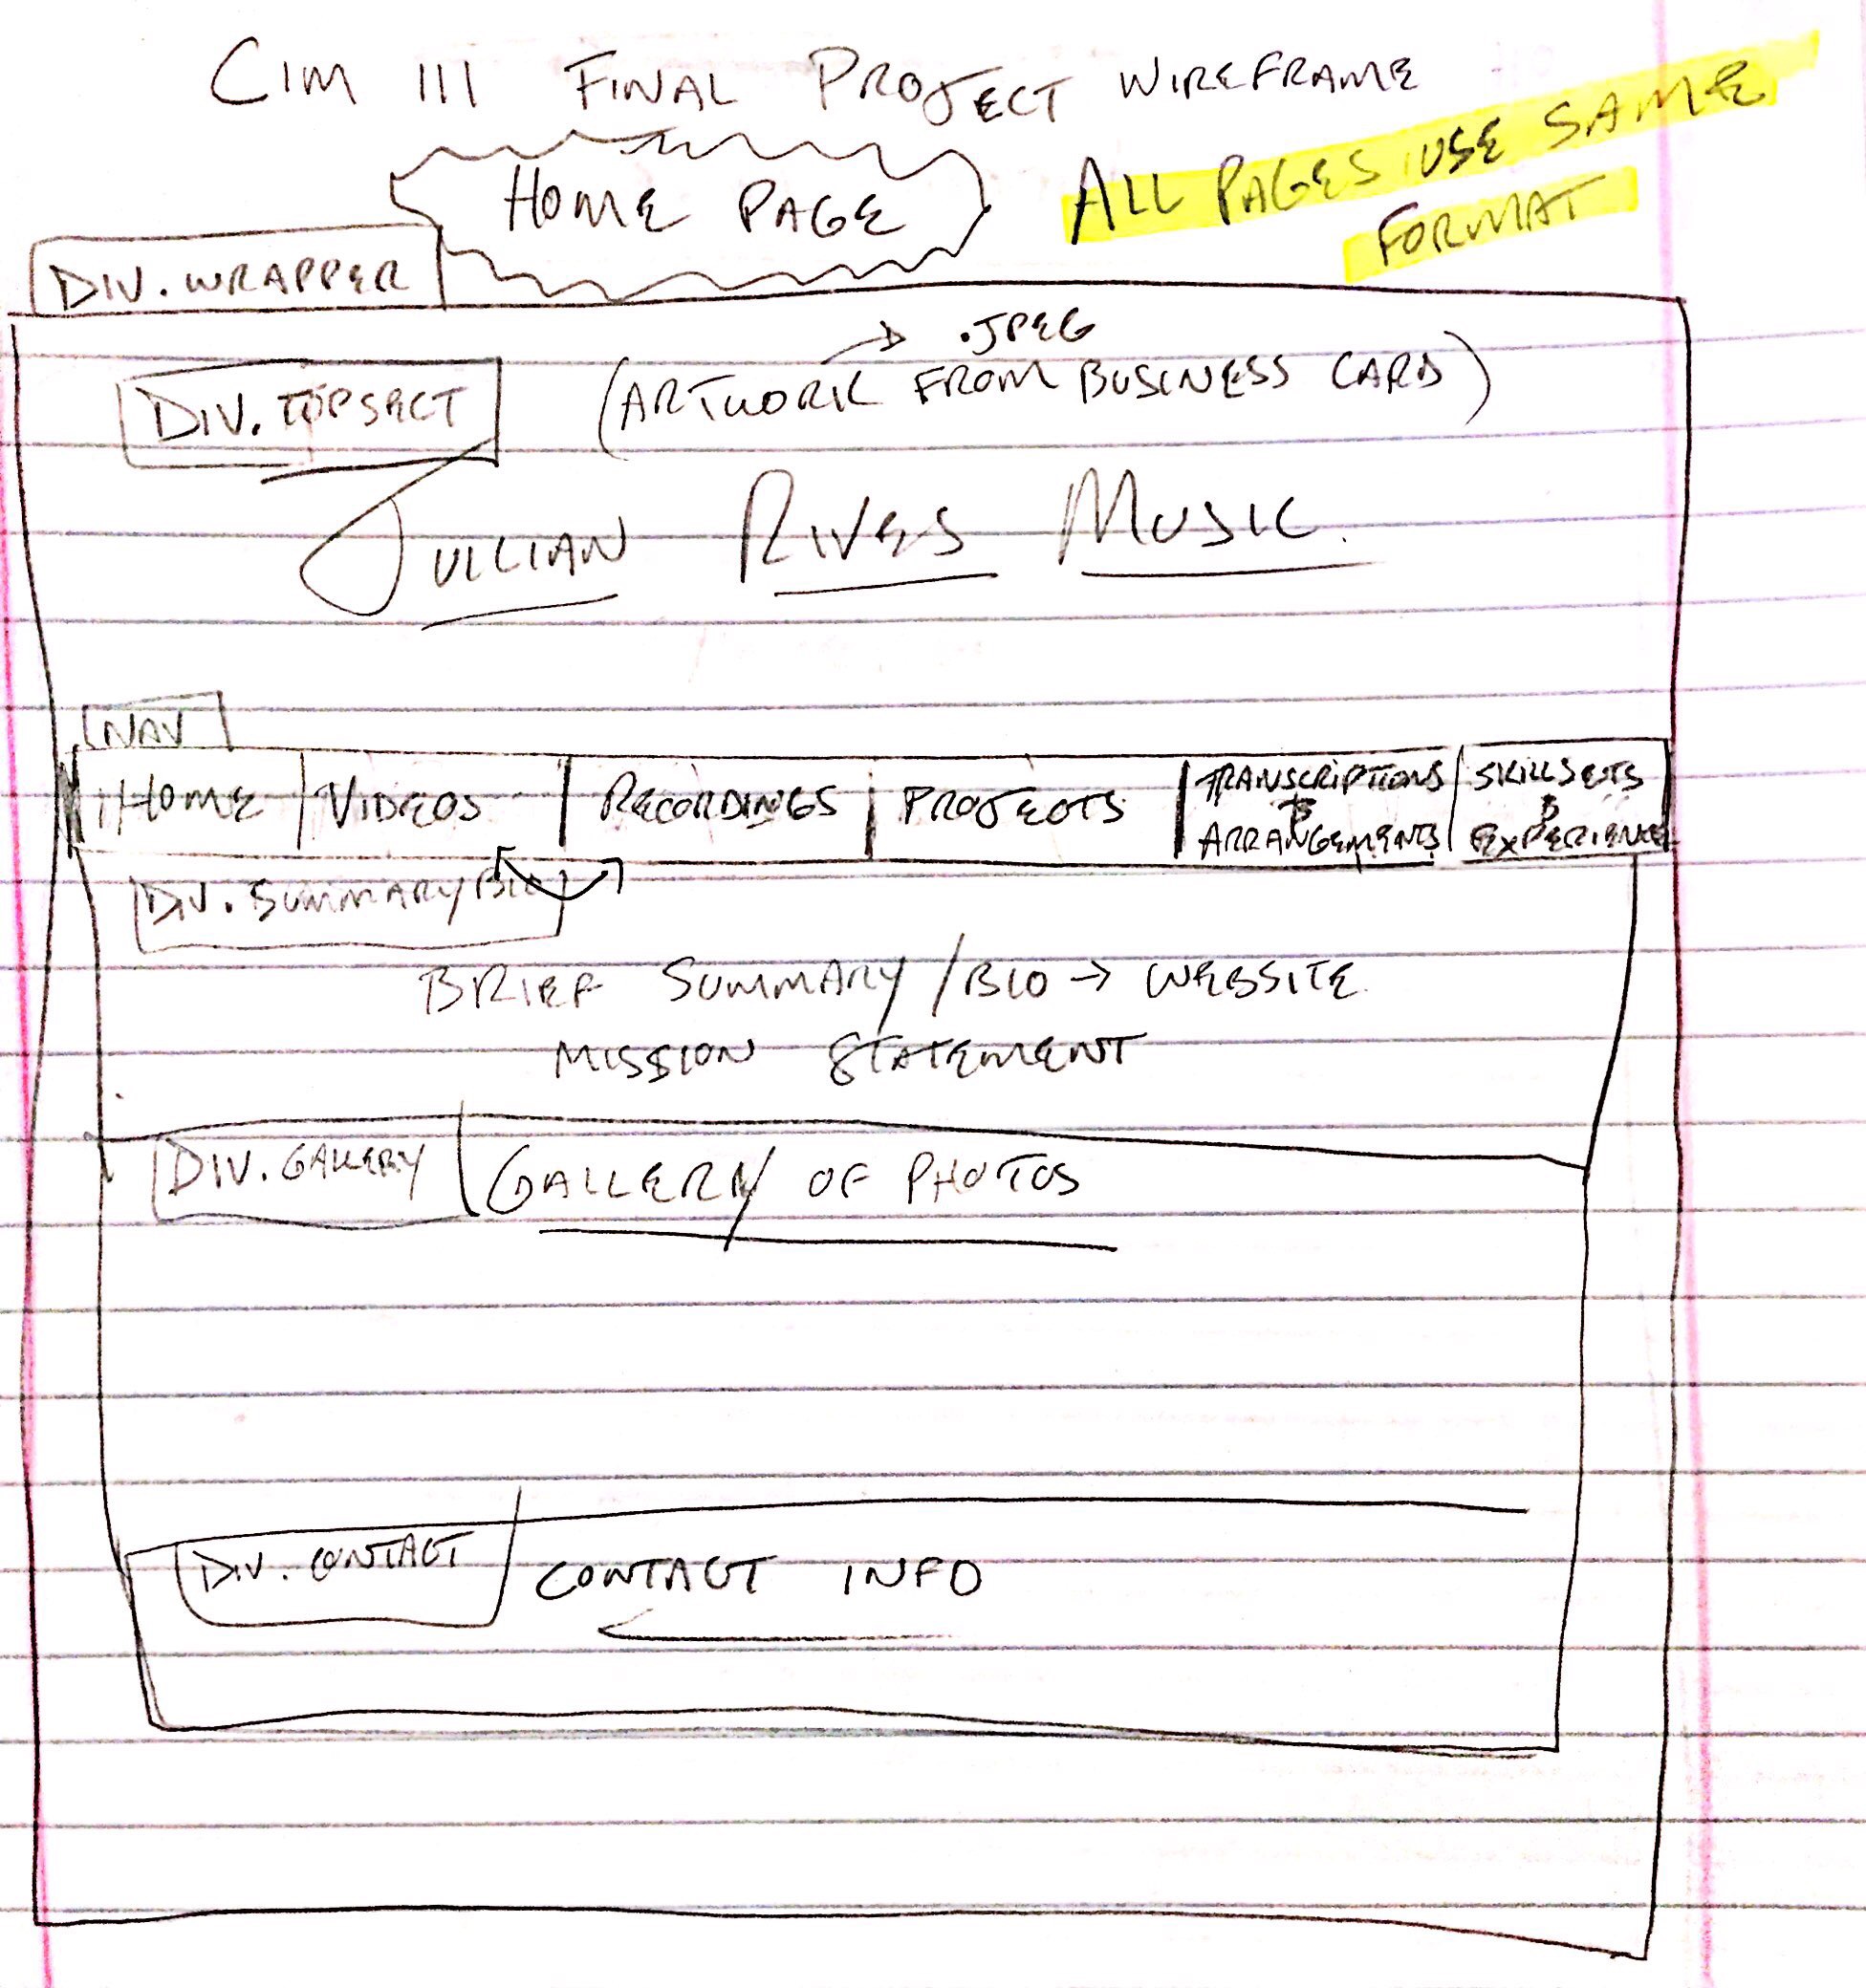 CIM III FINAL PROJECT WIREFRAME
HOME PAGE
ALL PAGES USE SAME
FORMAT
DIV. WRAPPER
.JPEG
DIV. TOPSECT
(ARTWORK FROM BUSINESS CARD)
JULIAN RIVES MUSIC
NAV
HOME VIDEOS RECORDINGS PROJECTS
TRANSCRIPTIONS
&
ARRANGEMENTS
SKILLSETS
&
EXPERIENCE
DIV. SUMMARY/BIO
BRIEF SUMMARY/BIO → WEBSITE
MISSION STATEMENT
DIV. GALLERY
GALLERY OF PHOTOS
DIV. CONTACT
CONTACT INFO